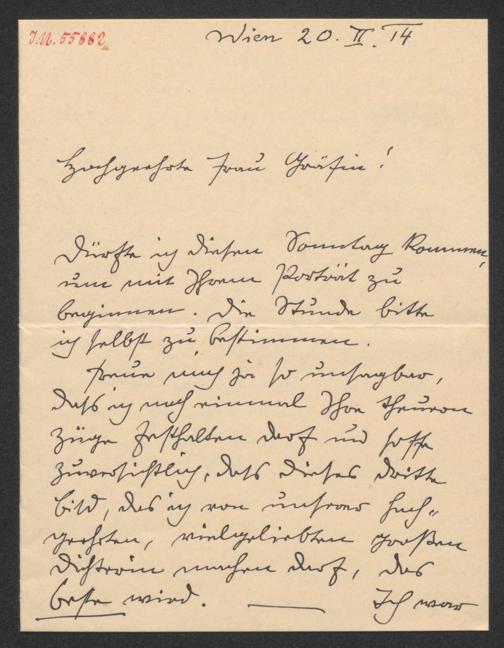 J.N. 55882
Wien 20. II. 14
Hochgeehrte Frau Gräfin!
Dürfte ich diesen Sonntag kommen,
um mit Ihrem Porträt zu
beginnen. Die Stunde bitte
ich selbst zu bestimmen.
Freue mich ja so unsagbar,
dass ich noch einmal Ihre theuren
Züge festhalten darf und hoffe
zuversichtlich, dass dieses dritte
Bild, das ich von unserer hoch-
geehrten, vielgeliebten grossen
Dichterin machen darf, das
beste wird. — Ich war